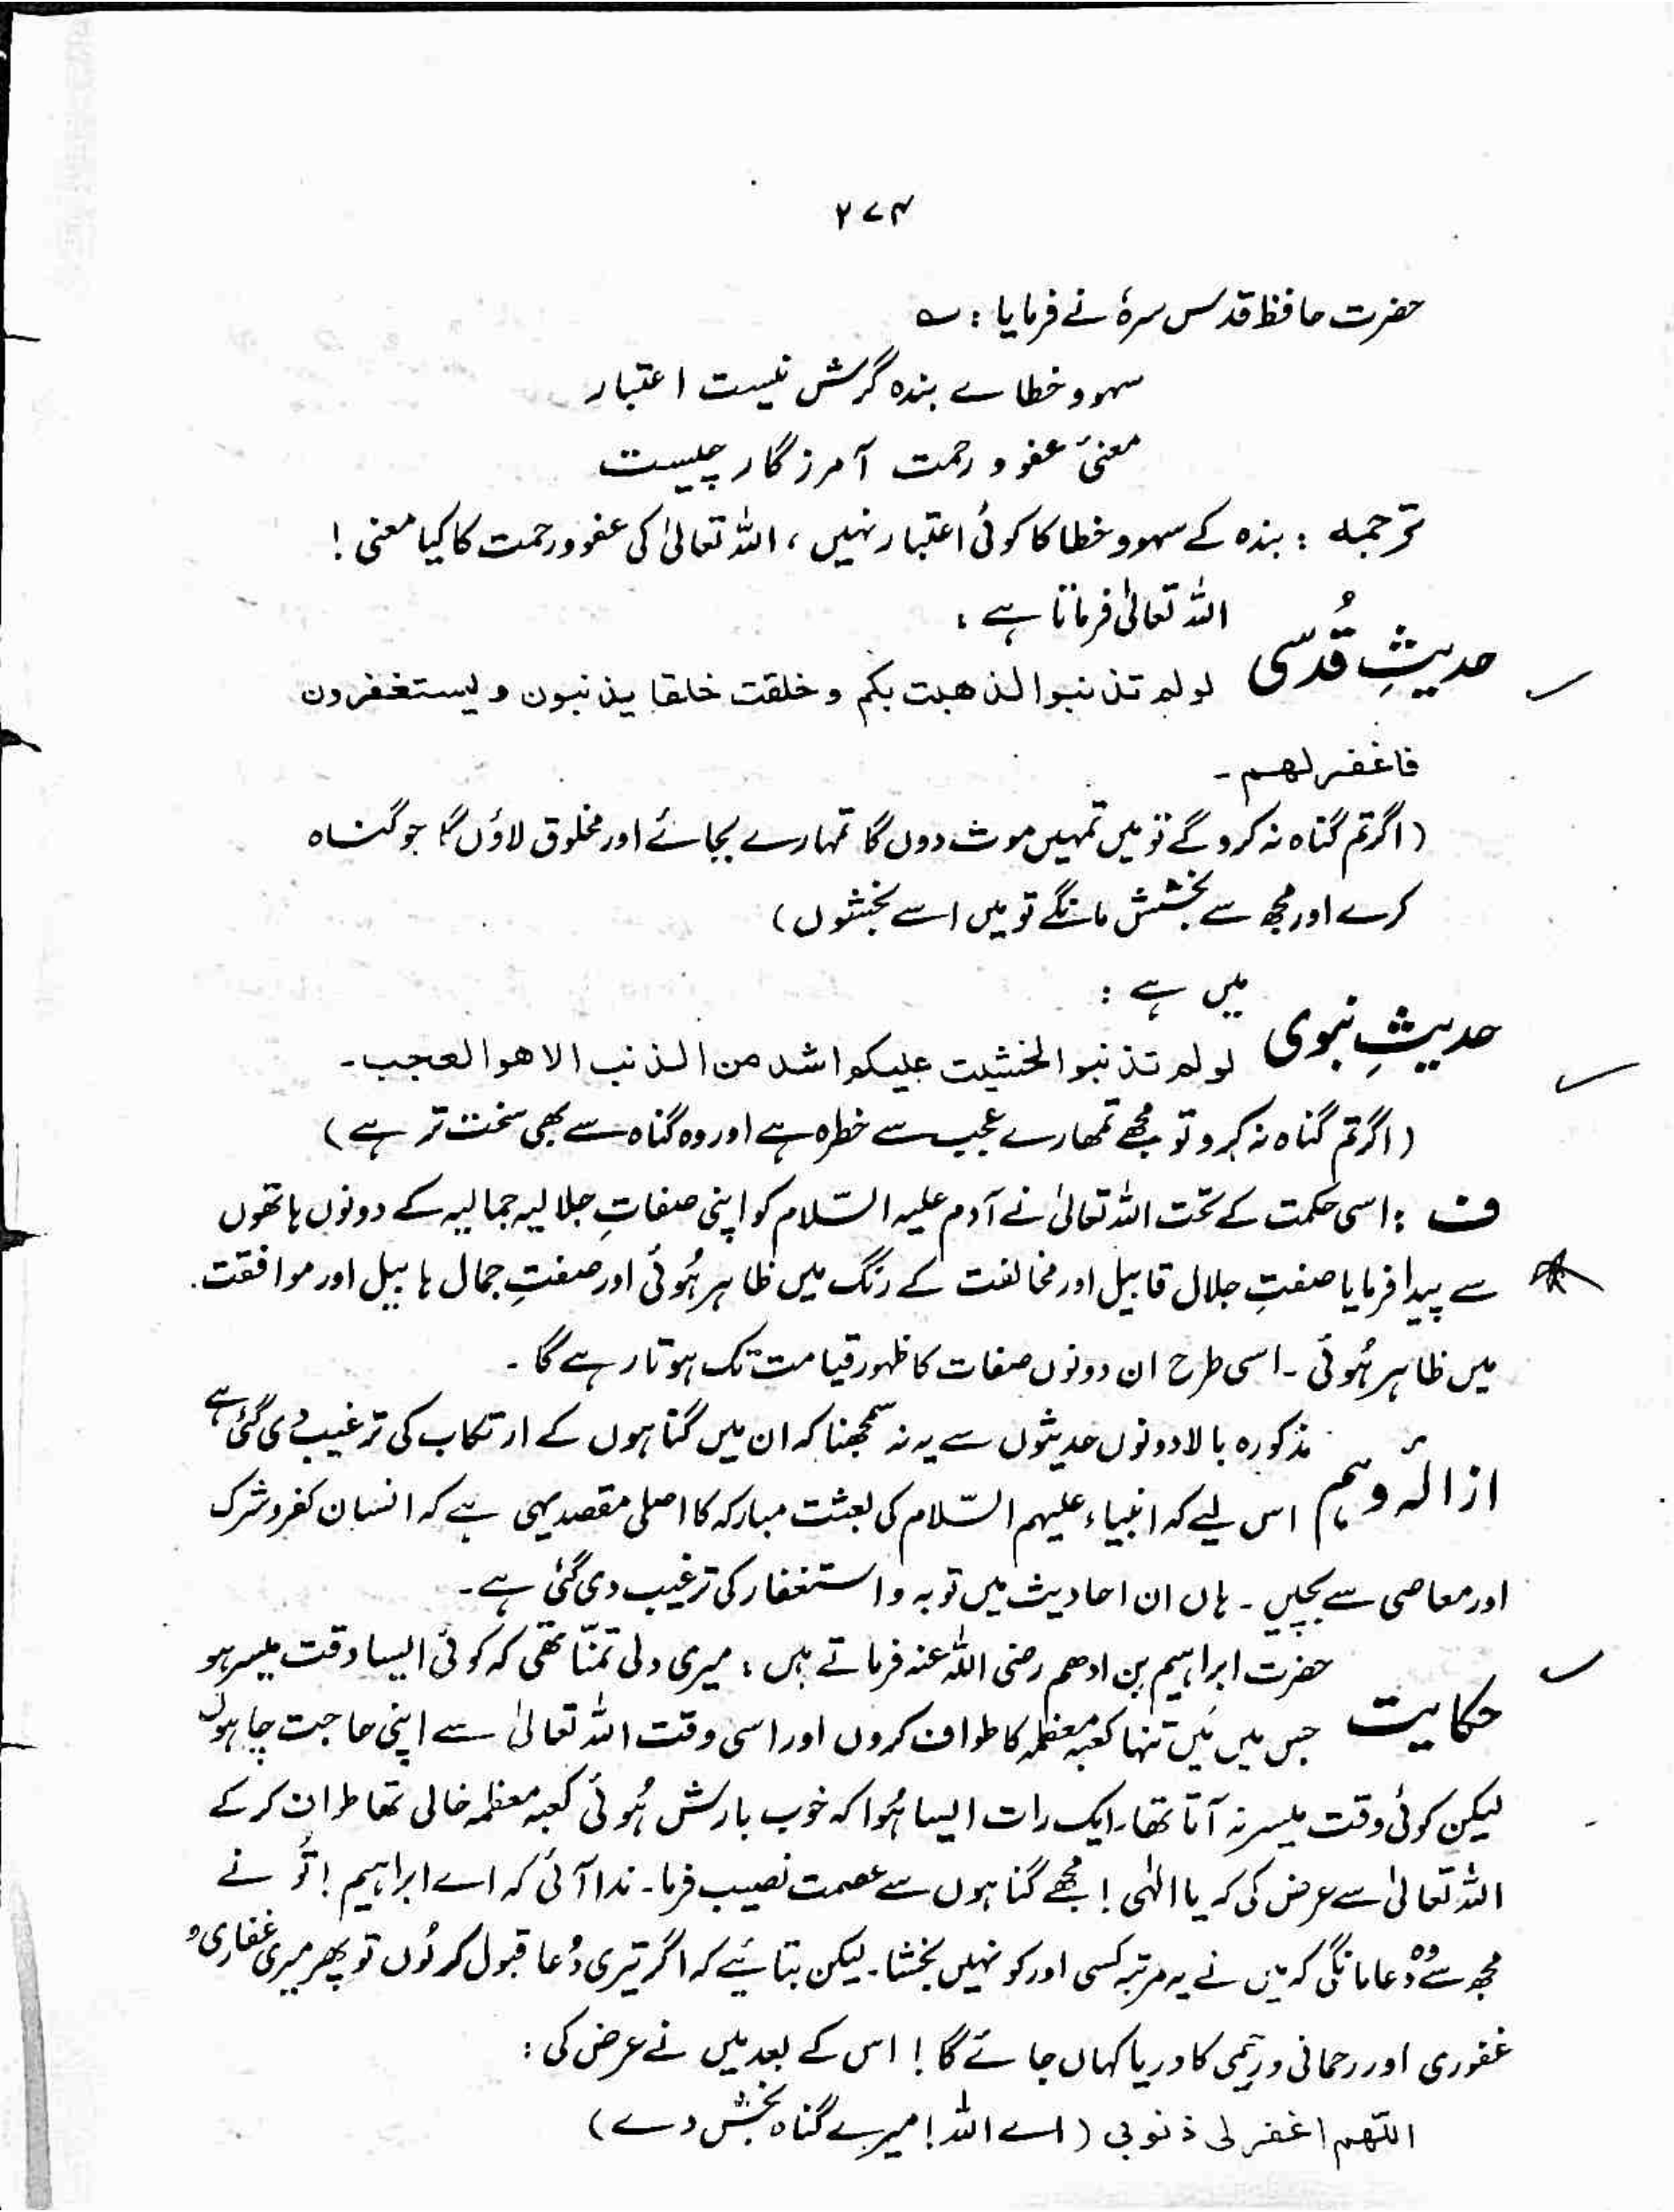 ۲۷۴
حضرت حافظ قدس سرہٗ نے فرمایا : ؎
سہو و خطاے بندہ گرش نیست اعتبار
معنیٔ عفو و رحمت آمرزگار چیست
ترجمہ : بندہ کے سہو و خطا کا کوئی اعتبار نہیں ، اللہ تعالیٰ کی عفو و رحمت کا کیا معنی !
اللہ تعالیٰ فرماتا ہے :
حدیثِ قُدسی
لولم تذنبوا لذهبت بکم و خلقت خلقا یذنبون و یستغفرون
فاغفر لهم ۔
( اگر تم گناہ نہ کرو گے تو میں تمہیں موت دوں گا تمہارے بجائے اور مخلوق لاؤں گا جو گناہ
کرے اور مجھ سے بخشش مانگے تو میں اسے بخشوں )
میں ہے :
حدیثِ نبوی
لولم تذنبوا لخشیت علیکم اشد من الذنب الا هو العجب ۔
( اگر تم گناہ نہ کرو تو مجھے تمھارے عجب سے خطرہ ہے اور وہ گناہ سے بھی سخت تر ہے )
ف : اسی حکمت کے تحت اللہ تعالیٰ نے آدم علیہ السّلام کو اپنی صفاتِ جلالیہ جمالیہ کے دونوں ہاتھوں
سے پیدا فرمایا صفتِ جلال قابیل اور مخالفت کے رنگ میں ظاہر ہُوئی اور صفتِ جمال ہابیل اور موافقت
میں ظاہر ہُوئی ۔ اسی طرح ان دونوں صفات کا ظہور قیامت تک ہوتا رہے گا ۔
مذکورہ بالا دونوں حدیثوں سے یہ نہ سمجھنا کہ ان میں گناہوں کے ارتکاب کی ترغیب دی گئی ہے
ازالۂ وہم
اس لیے کہ انبیاء علیہم السّلام کی بعثت مبارکہ کا اصلی مقصد یہی ہے کہ انسان کفر و شرک
اور معاصی سے بچیں ۔ ہاں ان احادیث میں توبہ و استغفار کی ترغیب دی گئی ہے ۔
حضرت ابراہیم بن ادھم رضی اللہ عنہ فرماتے ہیں : میری دلی تمنّا تھی کہ کوئی ایسا وقت میسر ہو
حکایت
جس میں مَیں تنہا کعبہ معظمہ کا طواف کروں اور اسی وقت اللہ تعالیٰ سے اپنی حاجت چاہوں
لیکن کوئی وقت میسر نہ آتا تھا ۔ ایک رات ایسا ہُوا کہ خوب بارش ہُوئی کعبہ معظمہ خالی تھا طواف کر کے
اللہ تعالیٰ سے عرض کی کہ یا الٰہی ! مجھے گناہوں سے عصمت نصیب فرما ۔ ندا آئی کہ اے ابراہیم ! تُو نے
مجھ سے وُہ دُعا مانگی کہ میں نے یہ مرتبہ کسی اور کو نہیں بخشا ۔ لیکن بتائیے کہ اگر تیری دُعا قبول کر لُوں تو پھر میری غفاری و
غفوری اور رحمانی و رحیمی کا دریا کہاں جائے گا ! اس کے بعد میں نے عرض کی :
اللّهم اغفر لی ذنوبی ( اے اللہ ! میرے گناہ بخش دے )